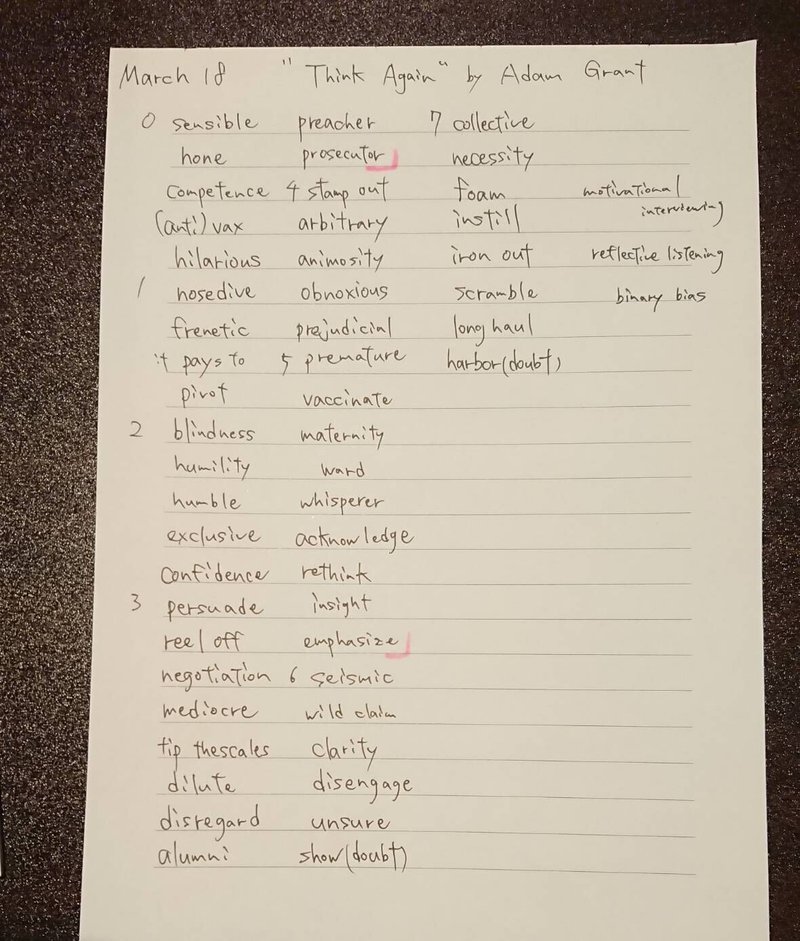 March 18 "Think Again" by Adam Grant
0 sensible preacher 7 collective
hone prosecutor necessity
competence 4 stamp out foam motivational
(anti)vax arbitrary instill interviewing
hilarious animosity iron out reflective listening
1 nosedive obnoxious scramble binary bias
frenetic prejudicial long haul
it pays to 5 premature harbor(doubt)
pivot vaccinate
2 blindness maternity
humility ward
humble whisperer
exclusive acknowledge
confidence rethink
3 persuade insight
reel off emphasize
negotiation 6 seismic
mediocre wild claim
tip thescales clarity
dilute disengage
disregard unsure
alumni show(doubt)